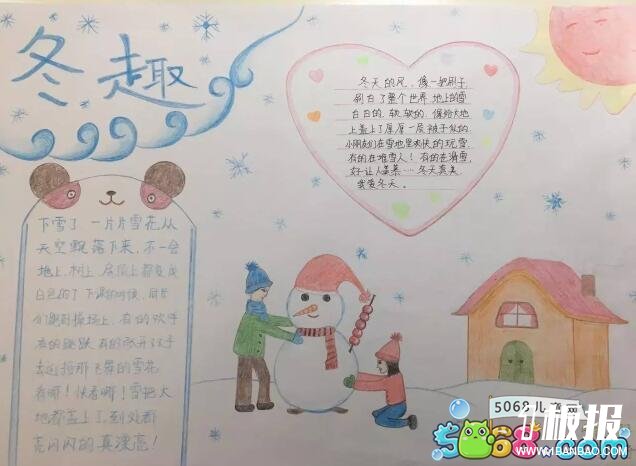 冬趣
冬天的风,像一把刷子
刷白了整个世界,地上的雪
白白的、软软的、像给大地
盖上了厚厚一层被子似的
小朋友们在雪地里爽快的玩雪
有的在堆雪人!有的在滑雪
好让人羡慕……冬天真美
我爱冬天。
下雪了,一片片雪花从
天空飘落下来,不一会
地上、树上、房顶上都变成
白色的了,下课的时候,同片
们跑到操场上,有的欢呼
有的跳跃,有的张开双手
去迎接那飞舞的雪花
看哪!快看哪!雪把大
地都盖上了,到处都
亮闪闪的真漂亮!
5068儿童网
5068.com
板报
WWW.1BANBAO.COM